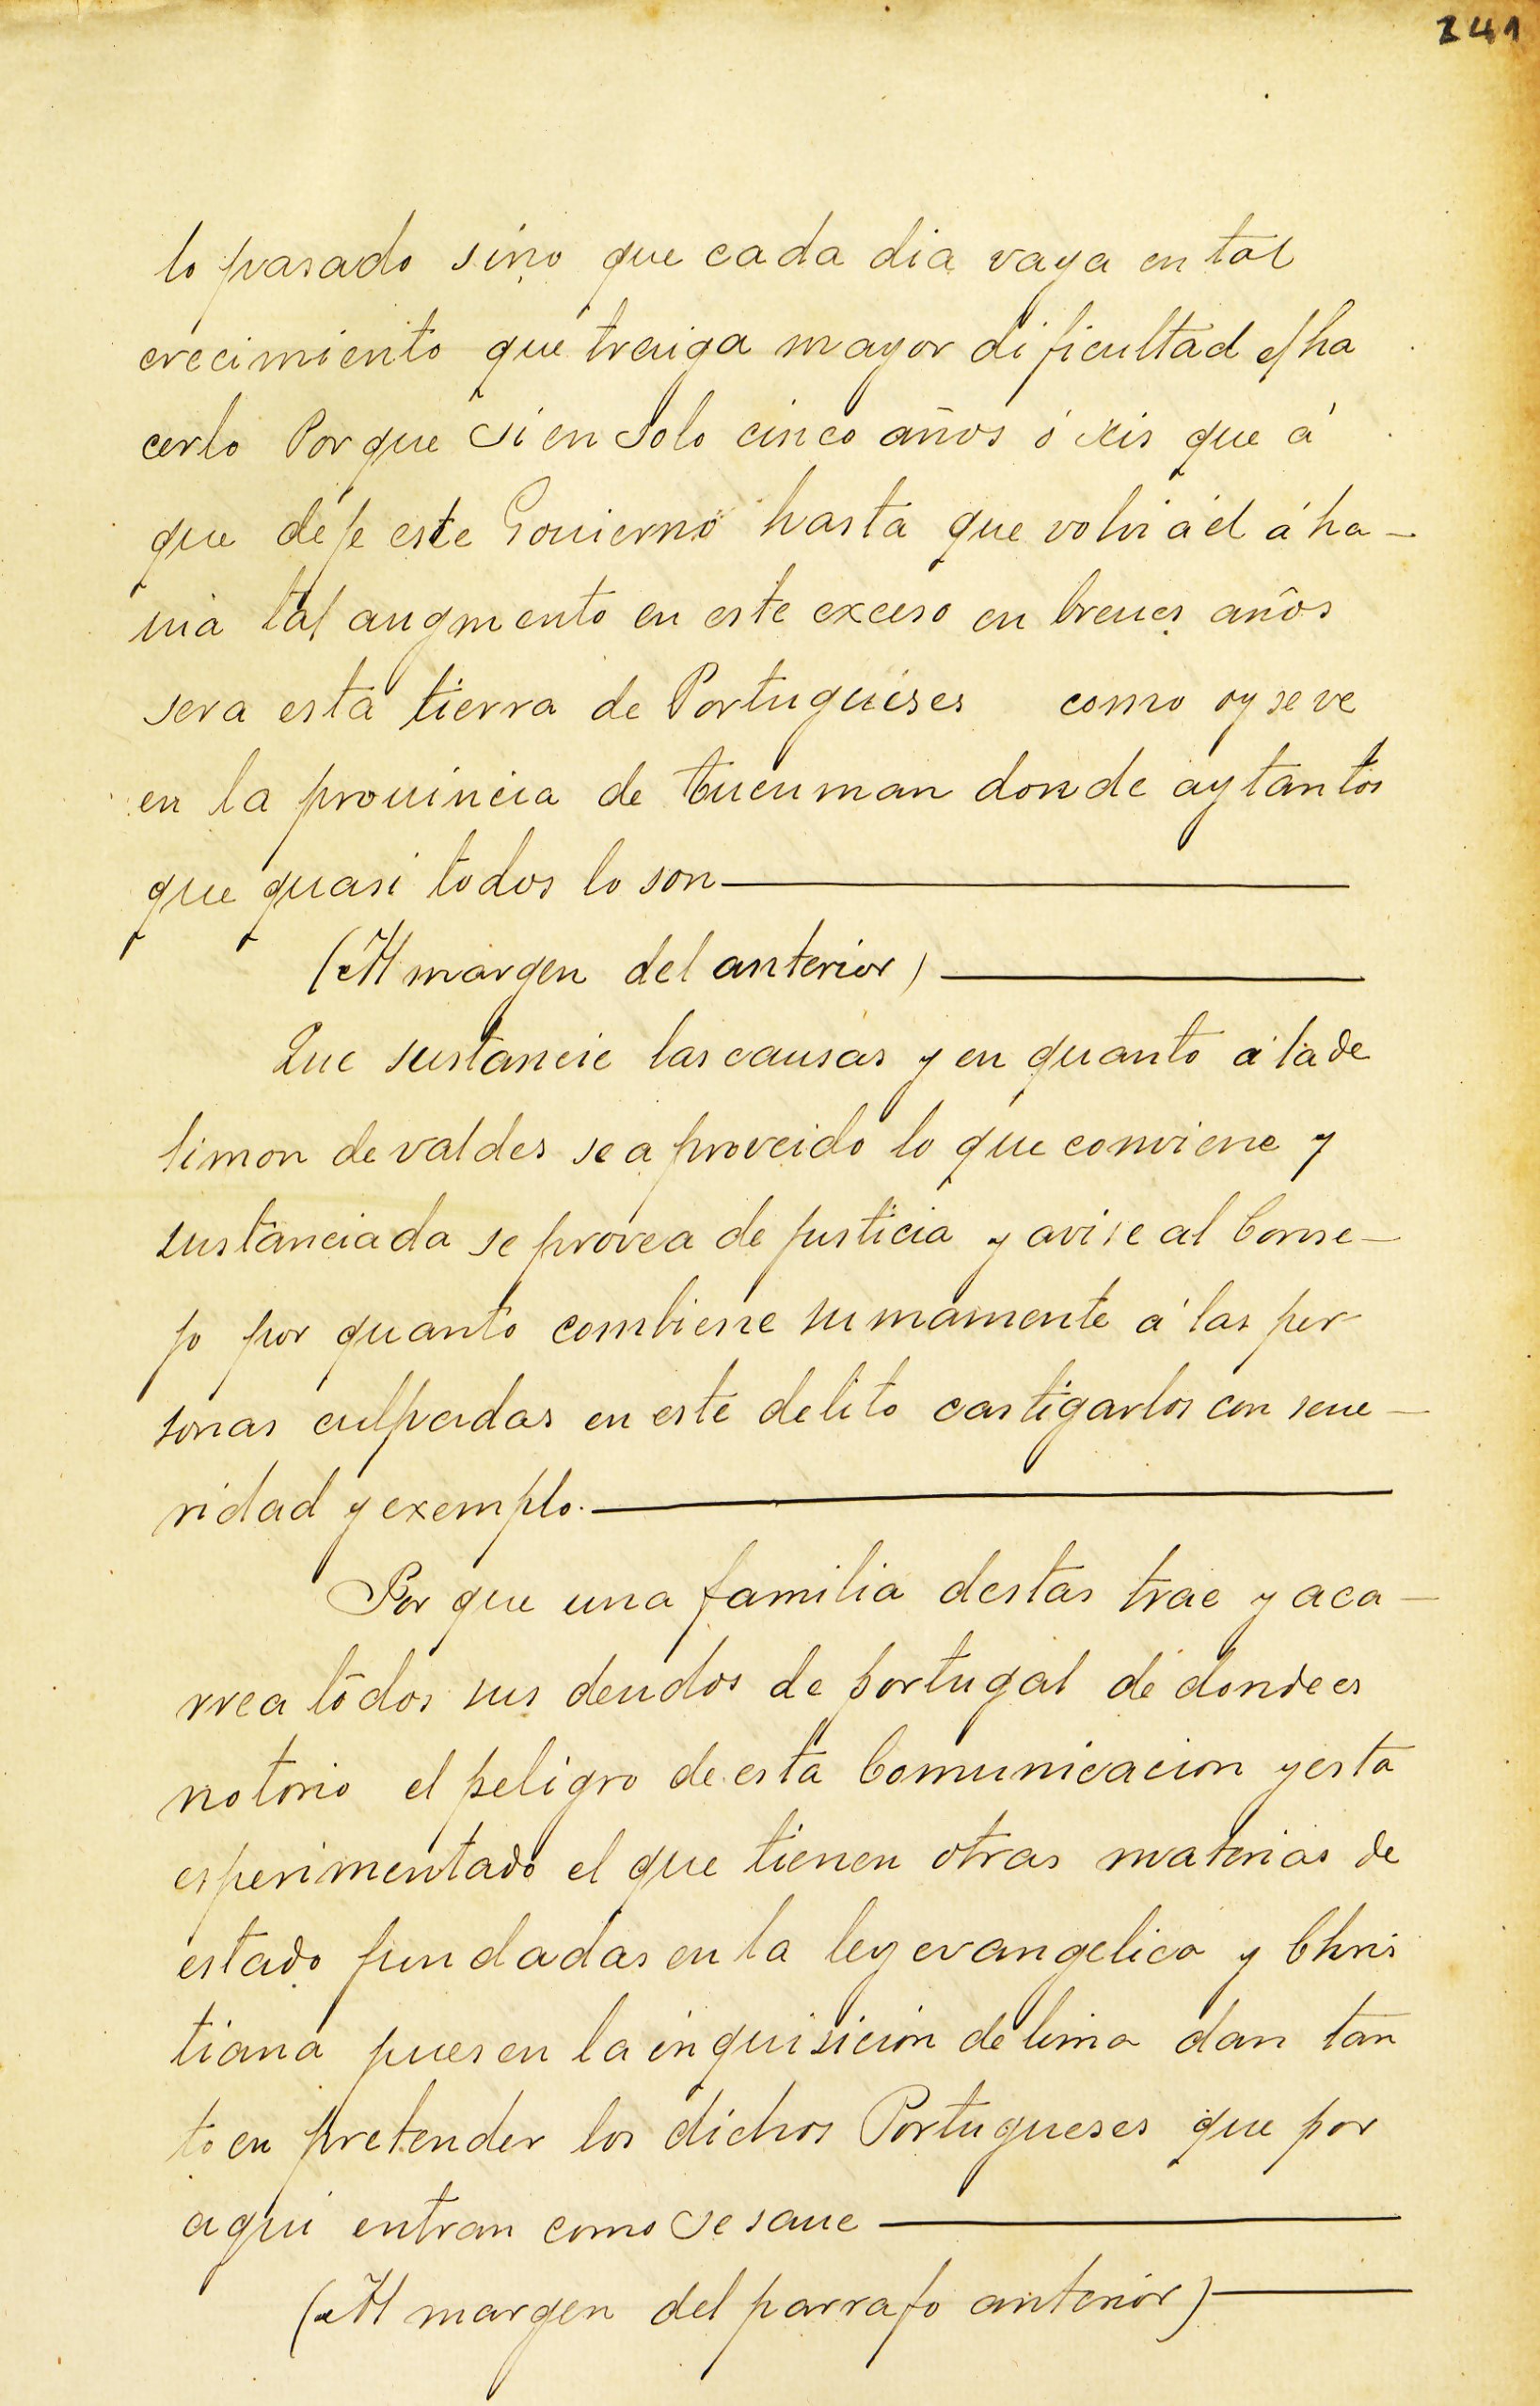 241
lo pasado sino que cada dia vaya en tal
crecimiento que traiga mayor dificultad el ha
cerlo Porque si en solo cinco años ó seis que á
que deje este Gouierno hasta que volvi á él á ha-
uia tal augmento en este exceso en breues años
sera esta tierra de Portugueses como oy se ve
en la prouincia de tucuman donde ay tantos
que quasi todos lo son
(Al margen del anterior)
Que sustancie las causas y en quanto á la de
simon de valdes se a proveido lo que conviene y
sustanciada se provea de justicia y avise al Conse-
jo por quanto combiene sumamente á las per
sonas culpadas en este delito castigarlos con seue-
ridad y exemplo.
Por que una familia destas trae y aca-
rrea todos sus deudos de portugal de donde es
notorio el peligro de esta Comunicacion y esta
esperimentado el que tienen otras materias de
estado fundadas en la ley evangelica y Chris
tiana pues en la inquisicion de lima dan tan
to en pretender los dichos Portugueses que por
aqui entran como se saue
(Al margen del parrafo anterior)